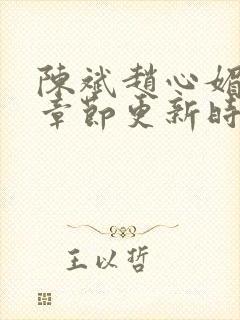 陳斌趙心媚
章節更新時
王以哲